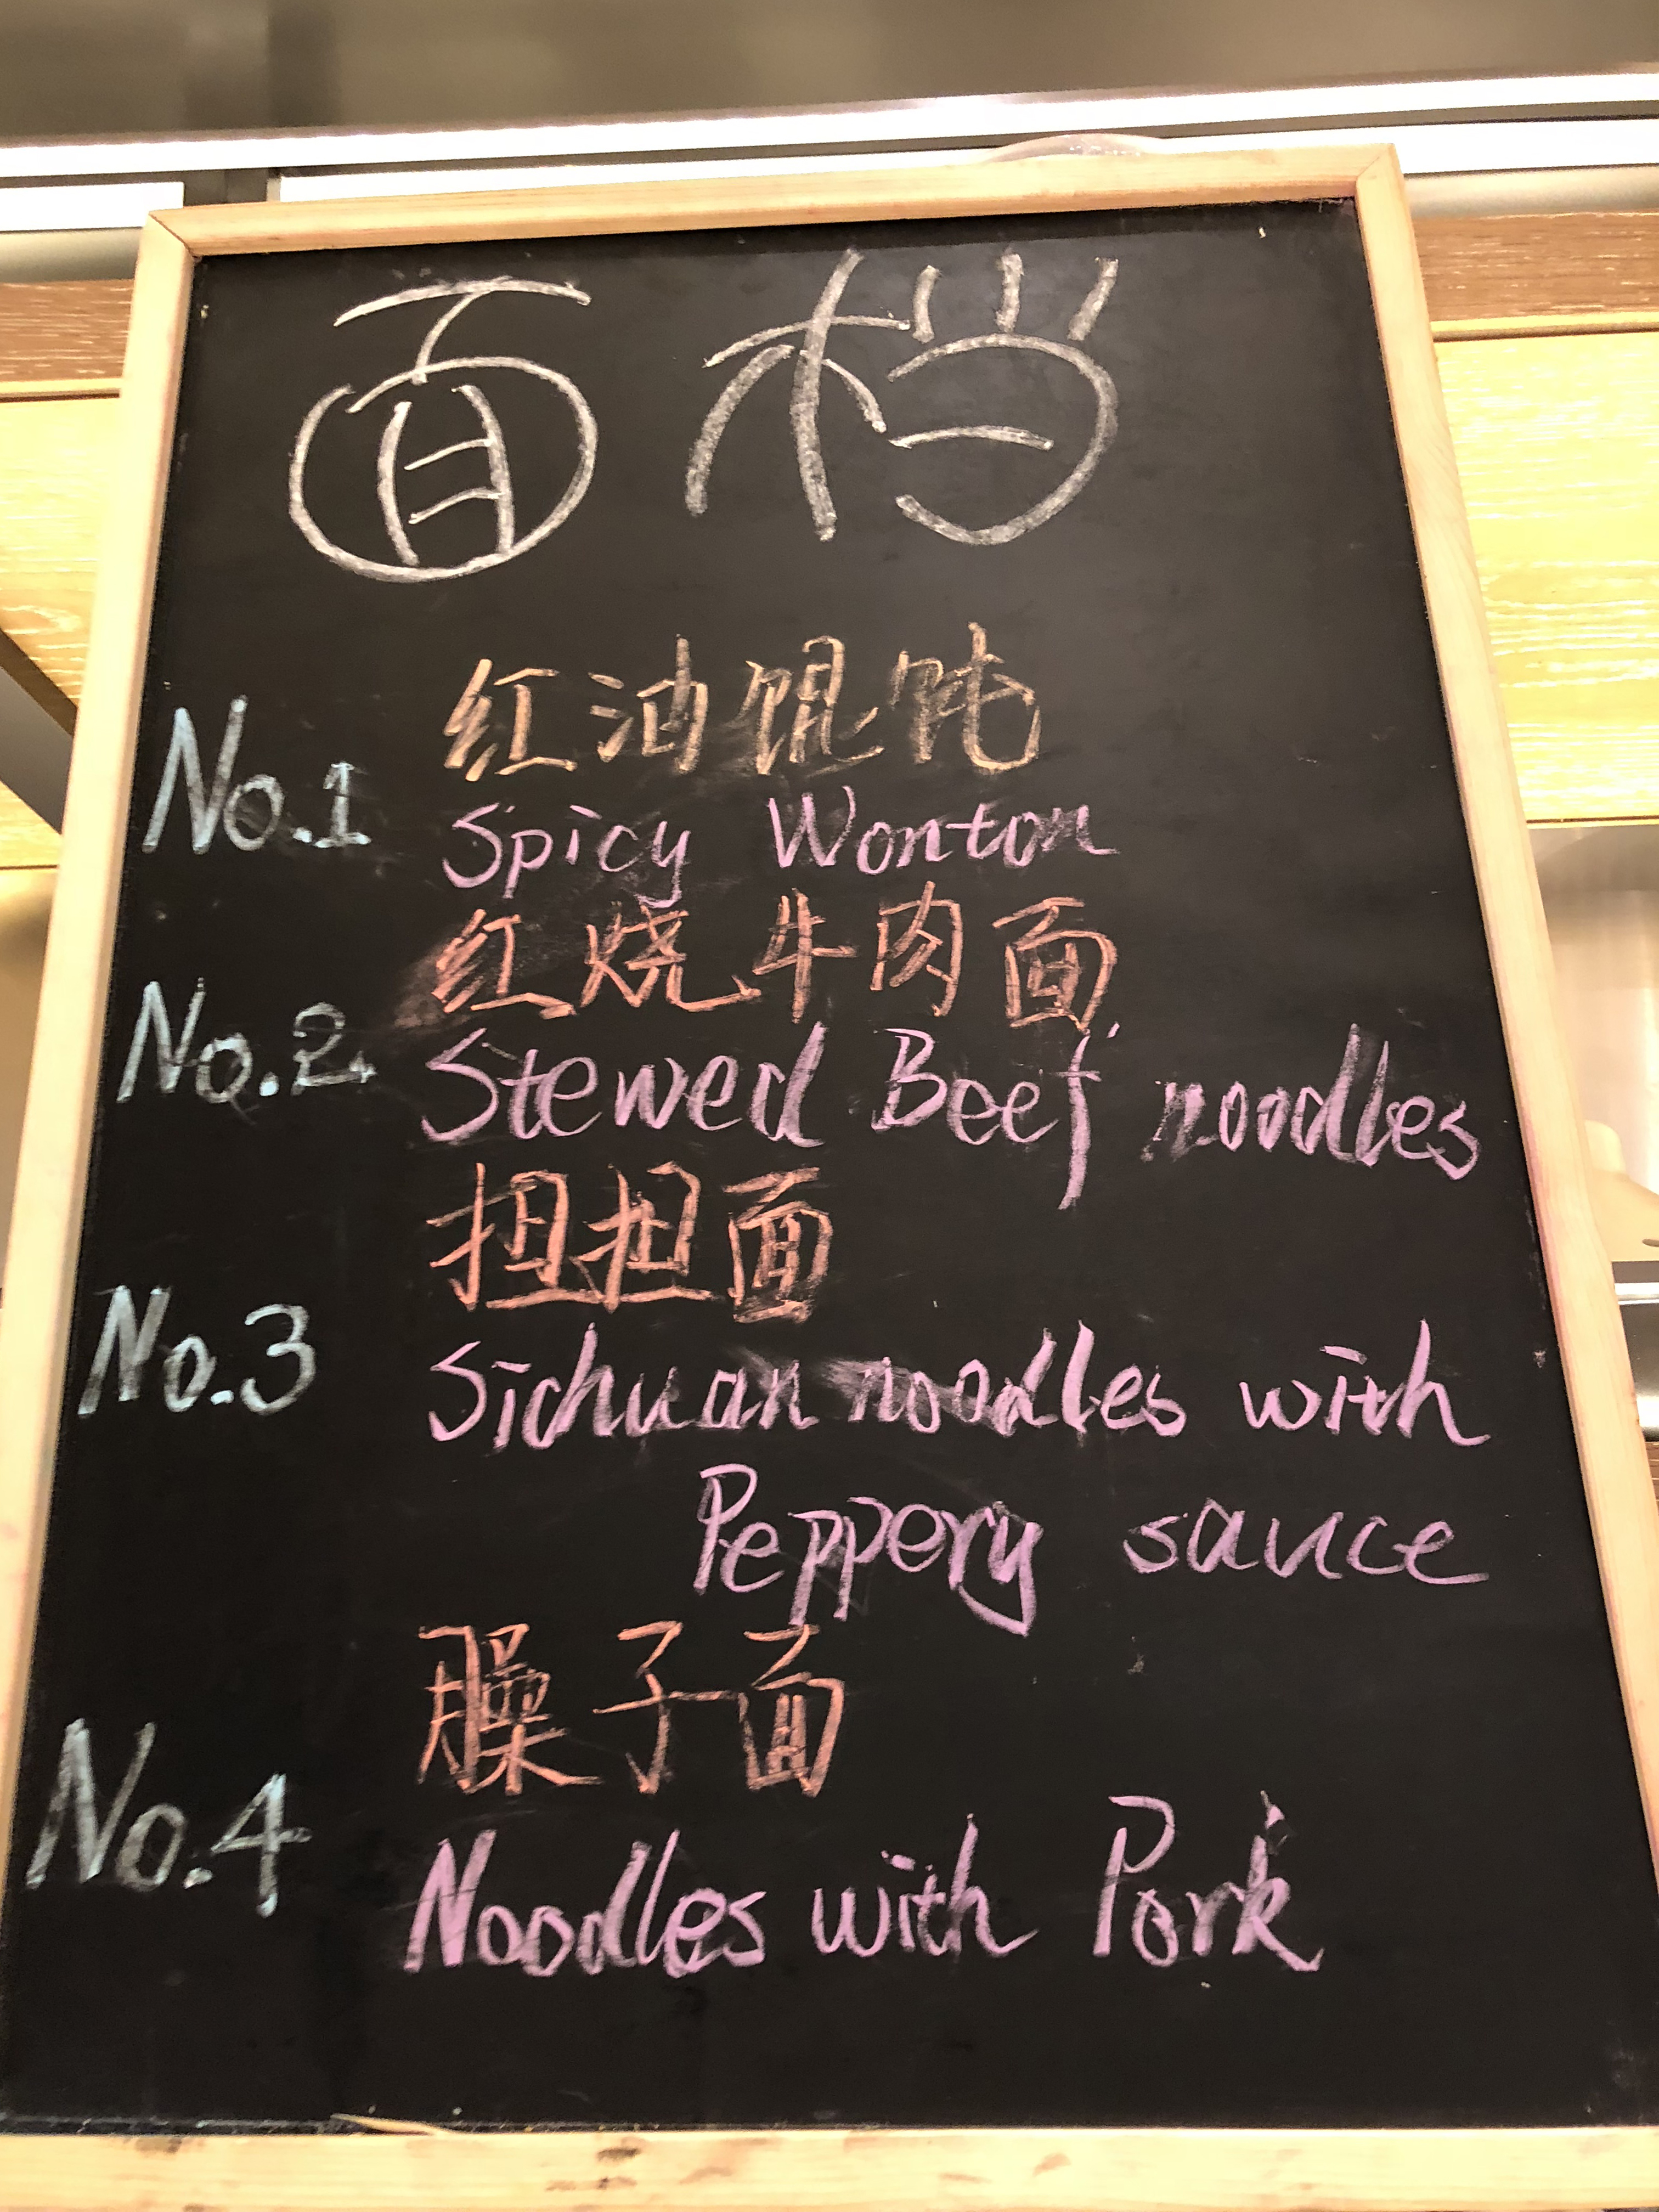 面档
No.1 红油馄饨
Spicy Wonton
No.2 红烧牛肉面
Stewed Beef noodles
No.3 担担面
Sichuan noodles with
Peppery sauce
No.4 臊子面
Noodles with Pork